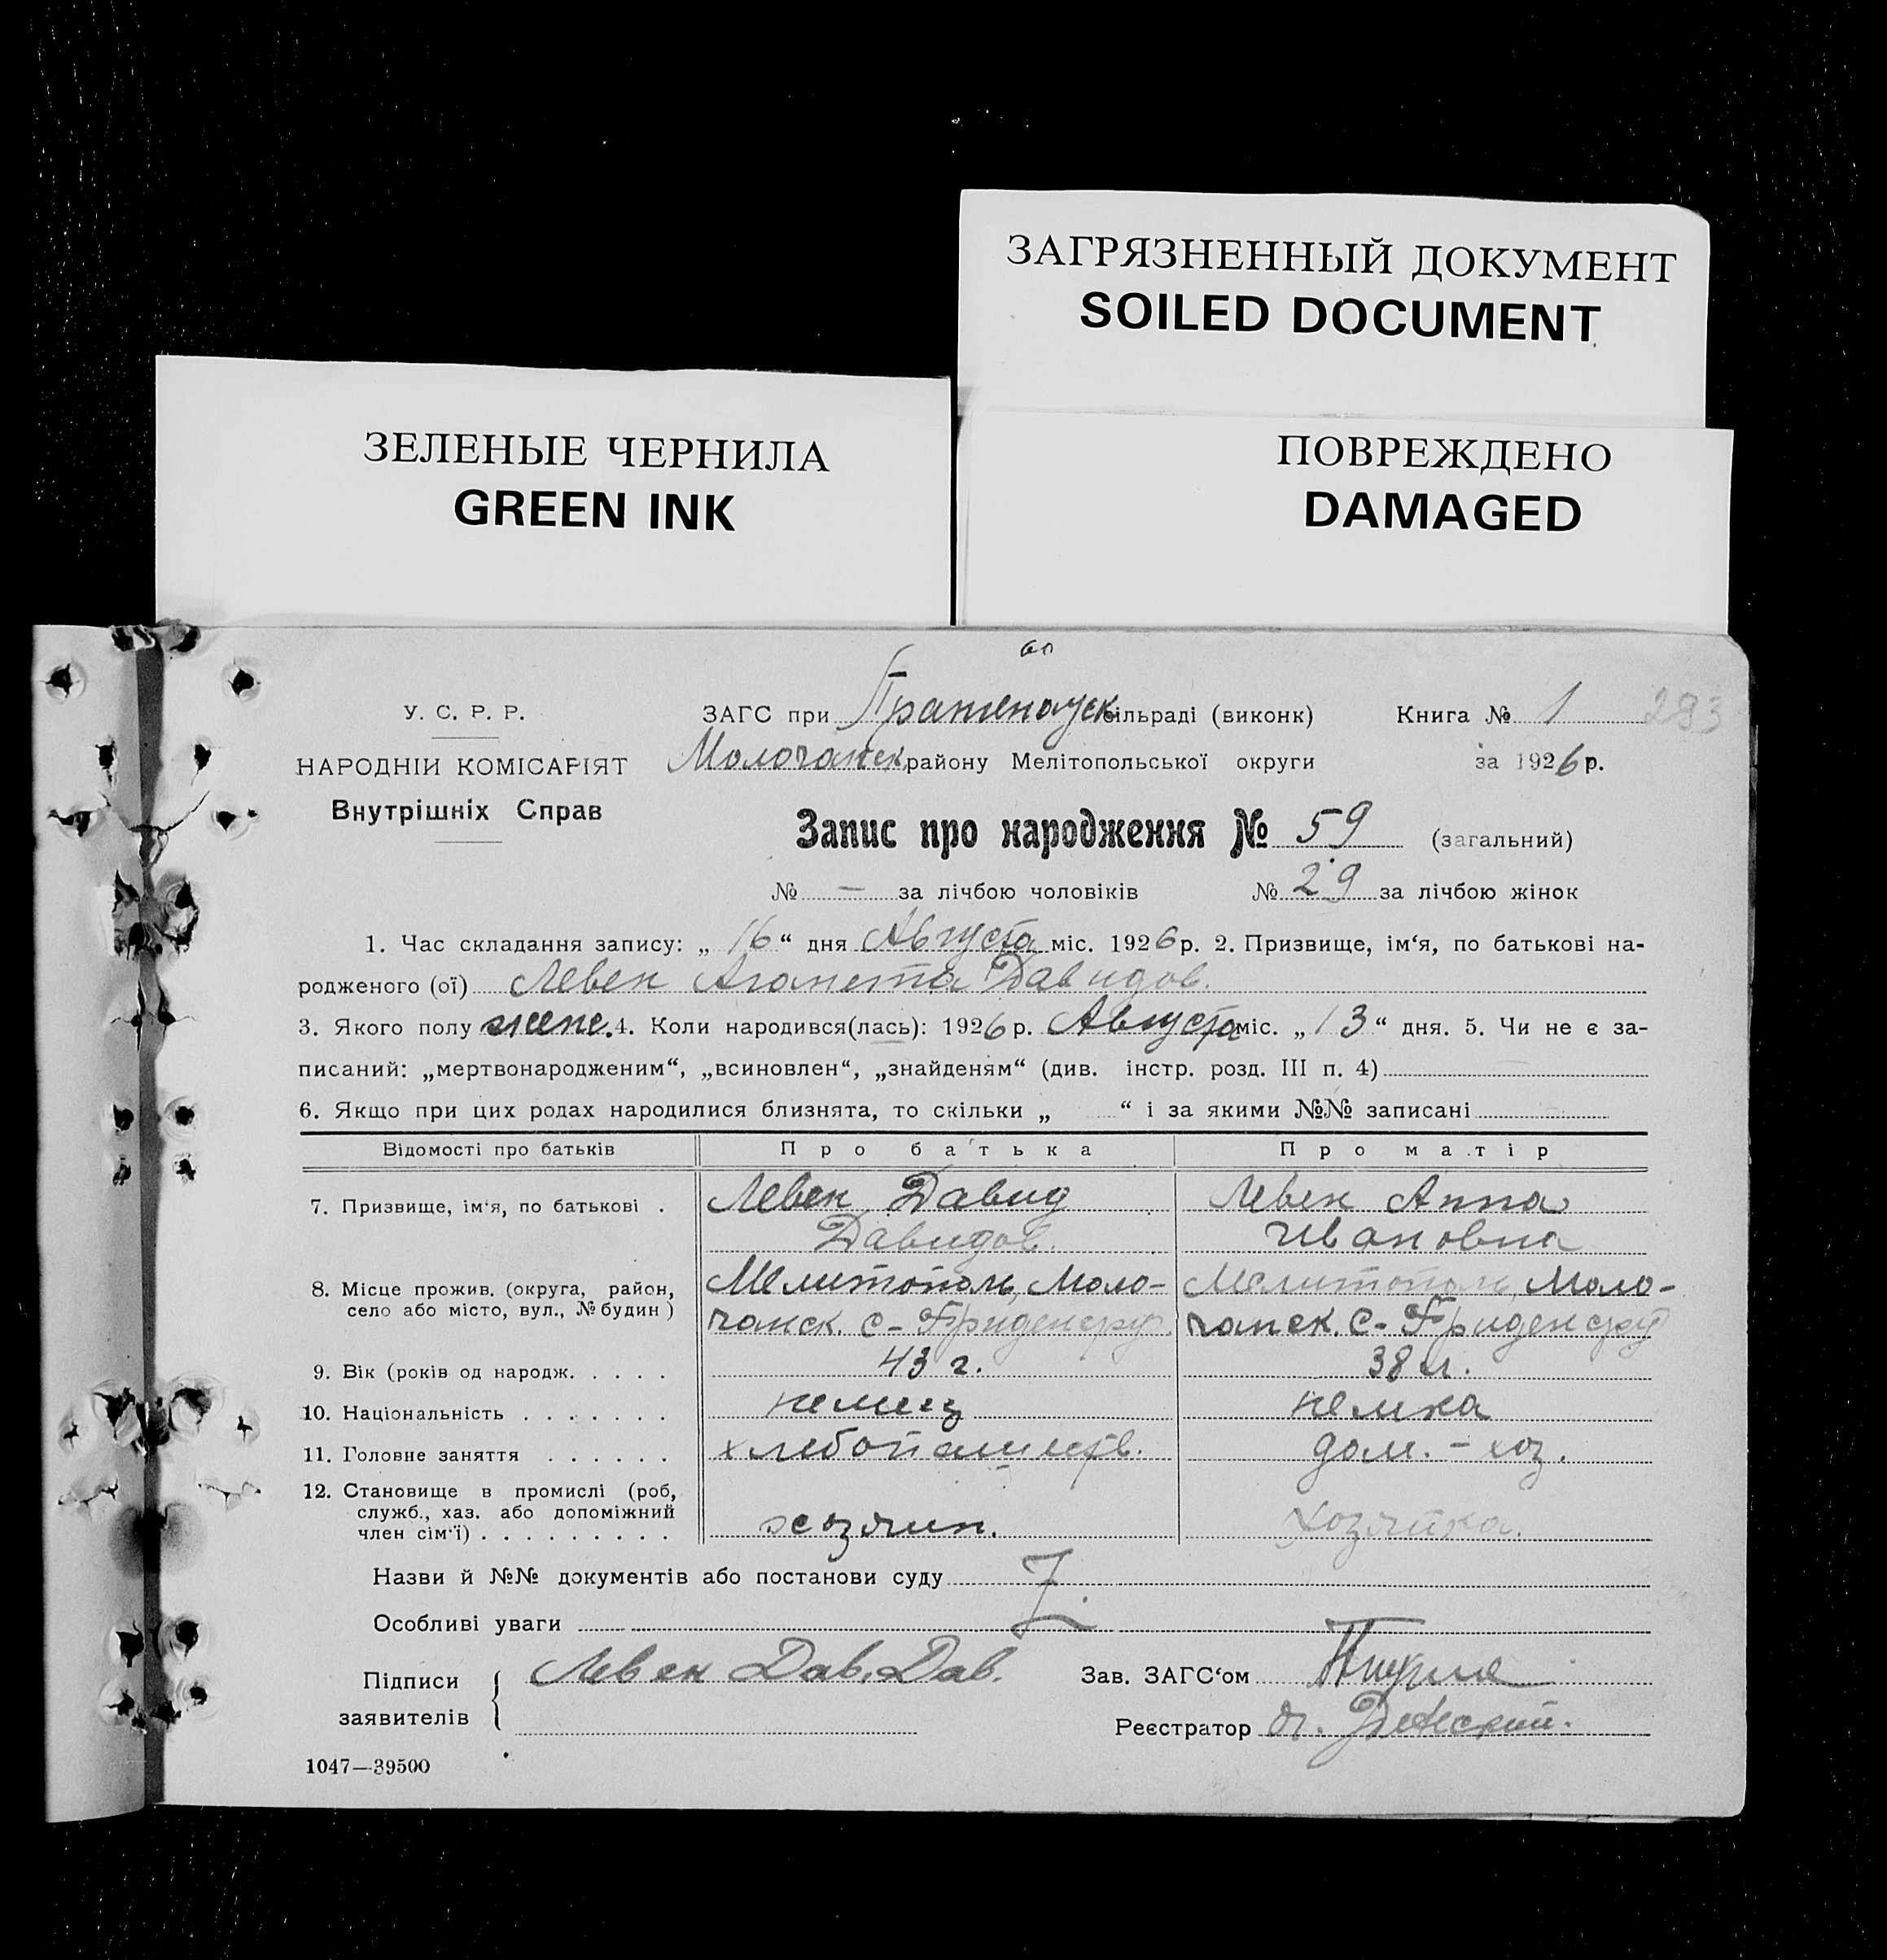 ЗАГРЯЗНЕННЫЙ ДОКУМЕНТ
SOILED DOCUMENT
ЗЕЛЕНЫЕ ЧЕРНИЛА
GREEN INK
ПОВРЕЖДЕНО
DAMAGED
60
У. С. Р. Р.
НАРОДНІЙ КОМІСАРІЯТ
Внутрішніх Справ
ЗАГС при сільраді (виконк) Книга № 1 293
Молочанск району Мелітопольської округи за 1926 р.
Запис про народження № 59 (загальний)
№ — за лічбою чоловіків № 29 за лічбою жінок
1. Час складання запису: „ 16 “ дня Августа міс. 1926 р. 2. Призвище, ім‘я, по батькові на-
родженого (ої) Левен Аганета Давидов.
3. Якого полу женс. 4. Коли народився(лась): 1926 р. Августа міс. „ 13 “ дня. 5. Чи не є за-
писаний: „мертвонародженим“, „всиновлен“, „знайденям“ (див. інстр. розд. III п. 4)
6. Якщо при цих родах народилися близнята, то скільки „ “ і за якими №№ записані
Відомості про батьків Про батька Про матір
7. Призвище, ім‘я, по батькові . Левен Давид Левен Анна
Давидов. Ивановна
8. Місце прожив. (округа, район, Мелитополь, Моло- Мелитополь, Моло-
село або місто, вул., № будин) чанск. с- Фриденсруг. чанск. с- Фриденсруг
9. Вік (років од народж. . . . . 43 г. 38 л.
10. Національність . . . . . . . немец немка
11. Головне заняття . . . . . . хлебопашеств. дом. - хоз.
12. Становище в промислі (роб,
служб., хаз. або допоміжний
член сім‘ї) . . . . . . . . . хозяин. хозяйка.
Назви й №№ документів або постанови суду
Особливі уваги
Підписи
заявителів
Левен Дав. Дав.
Зав. ЗАГС‘ом
Реєстратор
1047—39500